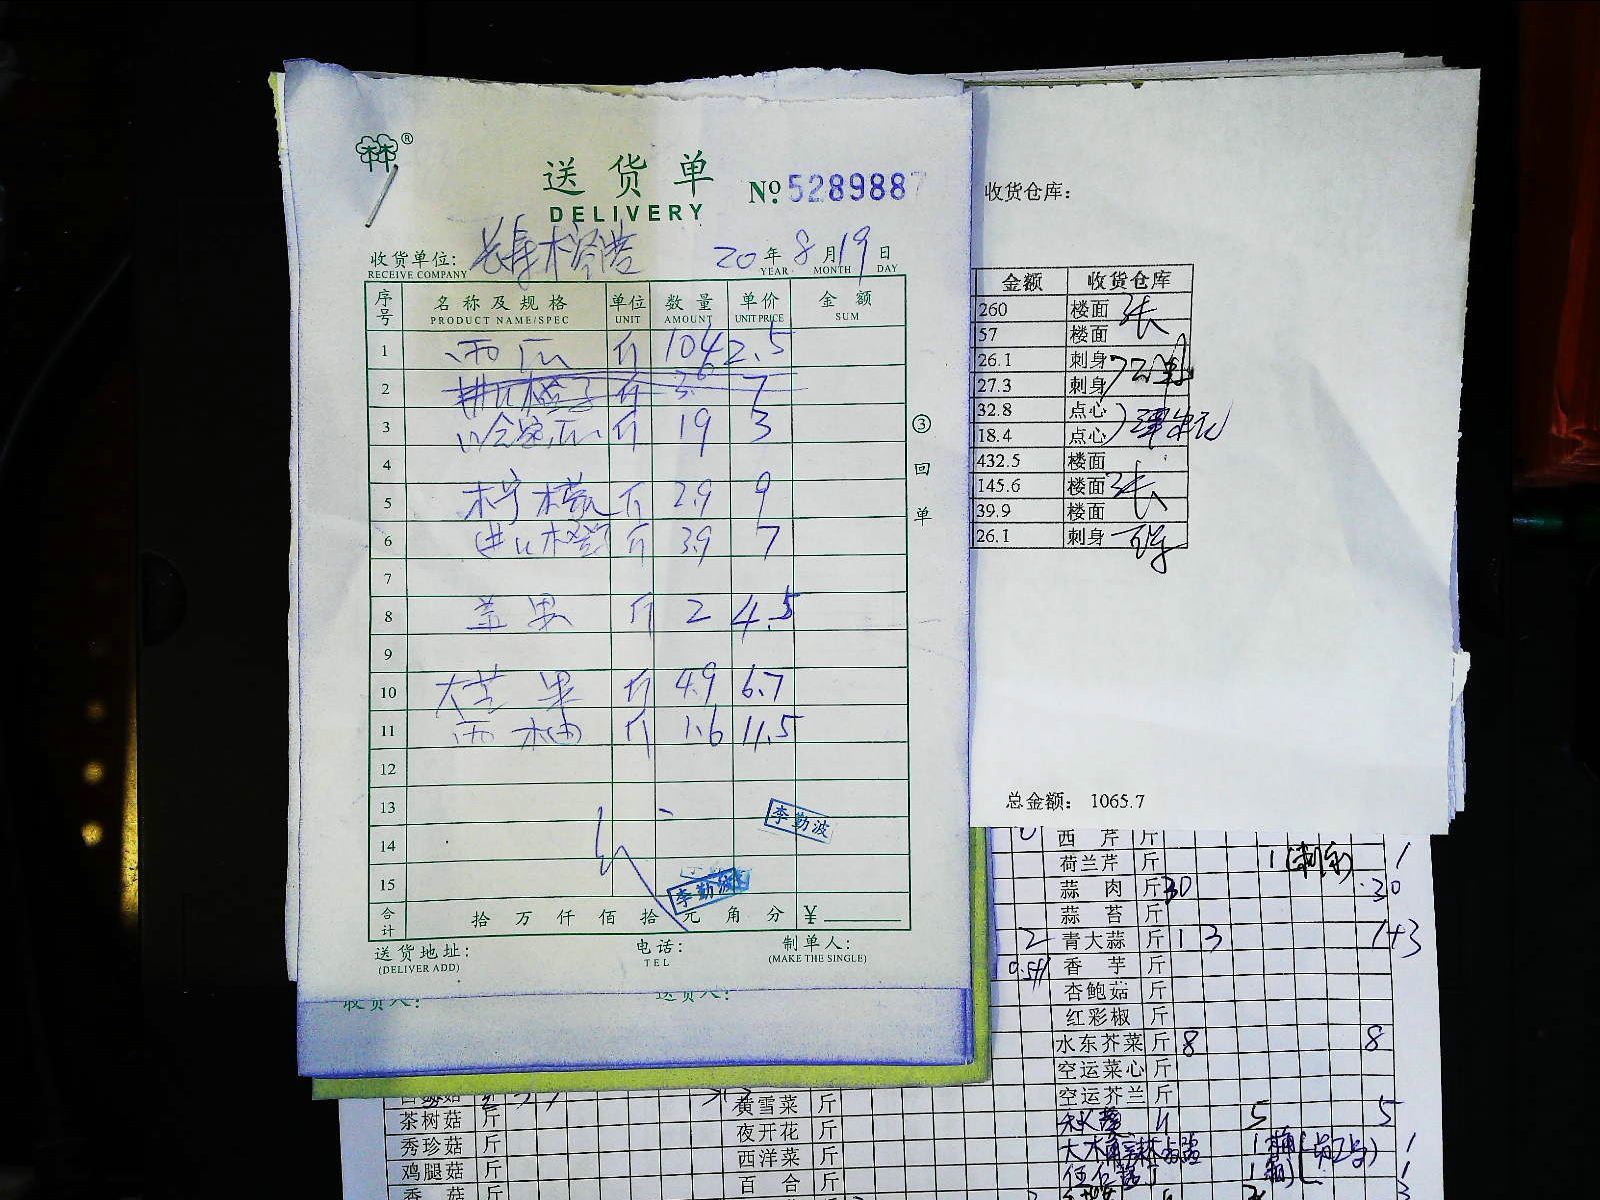 送货单
DELIVERY
No. 5289887
收货单位:
RECEIVE COMPANY
20 年 8 月 19 日
YEAR MONTH DAY
序号 名称及规格 单位 数量 单价 金额
PRODUCT NAME/SPEC UNIT AMOUNT UNIT PRICE SUM
1 西瓜 斤 104 2.5
2 进口橙子 斤 3.6 7
3 哈密瓜 斤 19 3
4
5 柠檬 斤 2.9 9
6 进口橙 斤 3.9 7
7
8 芒果 斤 2 4.5
9
10 大芒果 斤 4.9 6.7
11 西柚 斤 1.6 11.5
12
13
14
15
李勤波
李勤波
合计 拾 万 仟 佰 拾 元 角 分 ¥
送货地址: 电话: 制单人:
(DELIVER ADD) TEL (MAKE THE SINGLE)
收货人: 送货人:
③回单
收货仓库:
金额 收货仓库
260 楼面
57 楼面
26.1 刺身
27.3 刺身
32.8 点心
18.4 点心
432.5 楼面
145.6 楼面
39.9 楼面
26.1 刺身
总金额: 1065.7
西芹 斤
荷兰芹 斤 1 (刺身) 1
蒜肉 斤 30 30
蒜苔 斤
2 青大蒜 斤 1 3 1+3
香芋 斤
杏鲍菇 斤
红彩椒 斤
水东芥菜 斤 8 8
空运菜心 斤
空运芥兰 斤
秋葵 斤 5 5
茶树菇 斤
秀珍菇 斤
鸡腿菇 斤
香菇 斤
黄雪菜 斤
夜开花 斤
西洋菜 斤
百合 斤